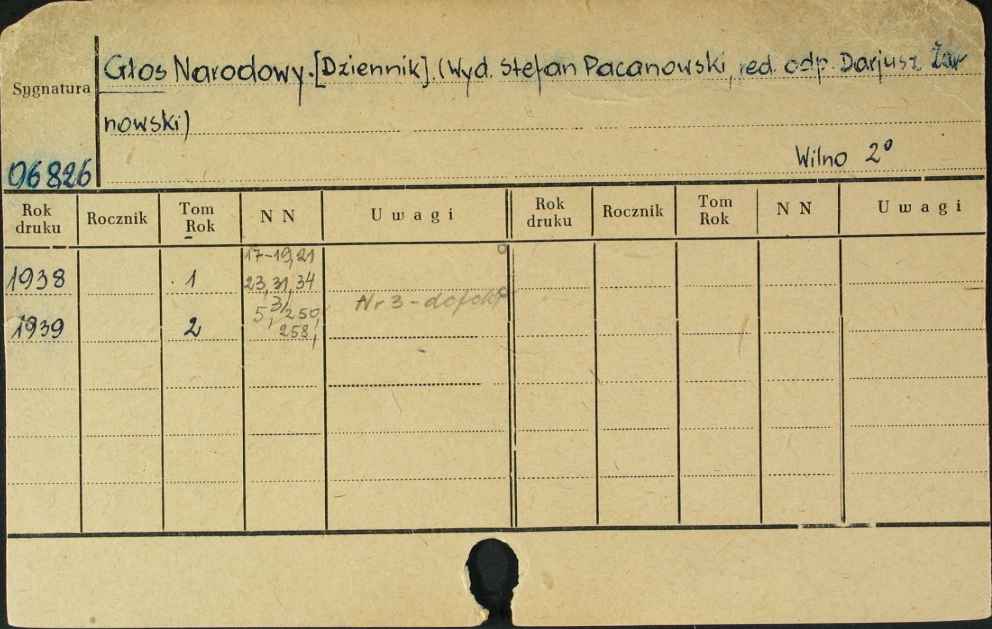 Głos Narodowy. [Dziennik]. (Wyd. Stefan Pacanowski, red. odp. Darjusz Żar
nowski)
Sygnatura
Wilno 2°
06826
Rok druku Rocznik Tom Rok NN Uwagi Rok druku Rocznik Tom Rok NN Uwagi
17-19, 21
1938 1 23, 31, 34
Nr 3 - defekt
5, 250,
1939 2 258,